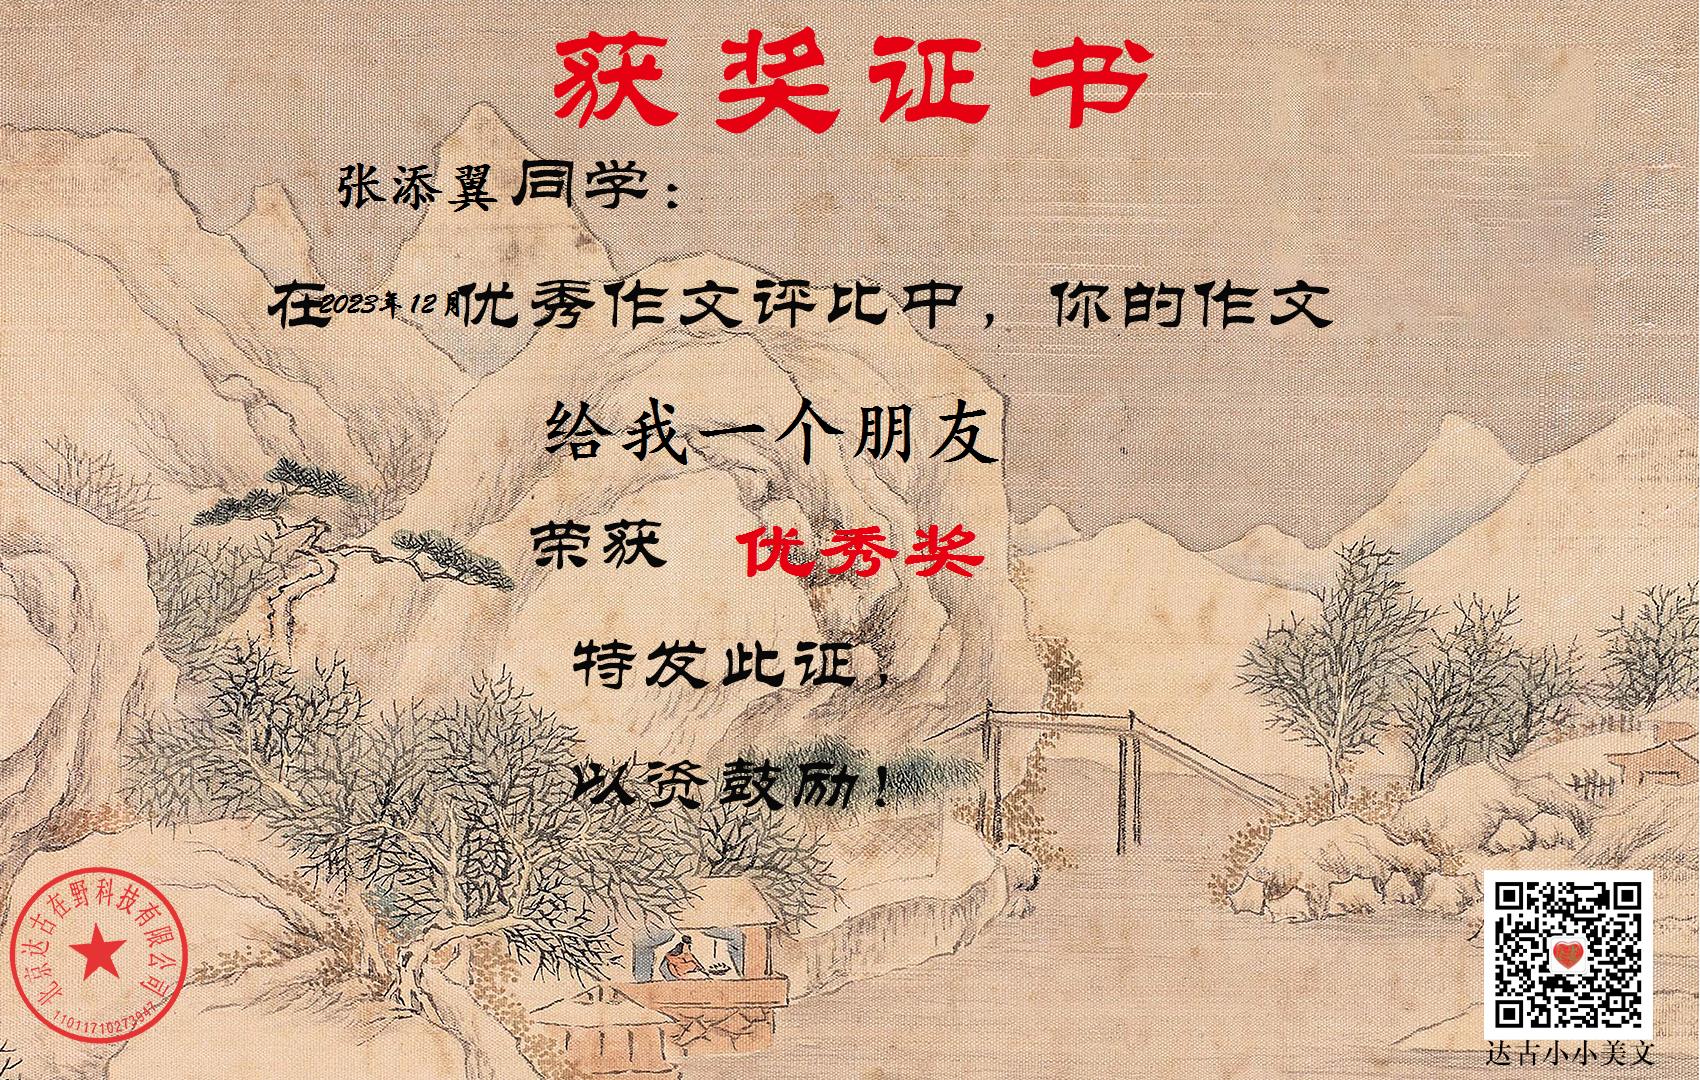 获奖证书
张添翼同学：
在2023年12月优秀作文评比中，你的作文
给我一个朋友
荣获 优秀奖
特发此证，
以资鼓励！
北京达古在野科技有限公司
11011710273947
达古小小美文